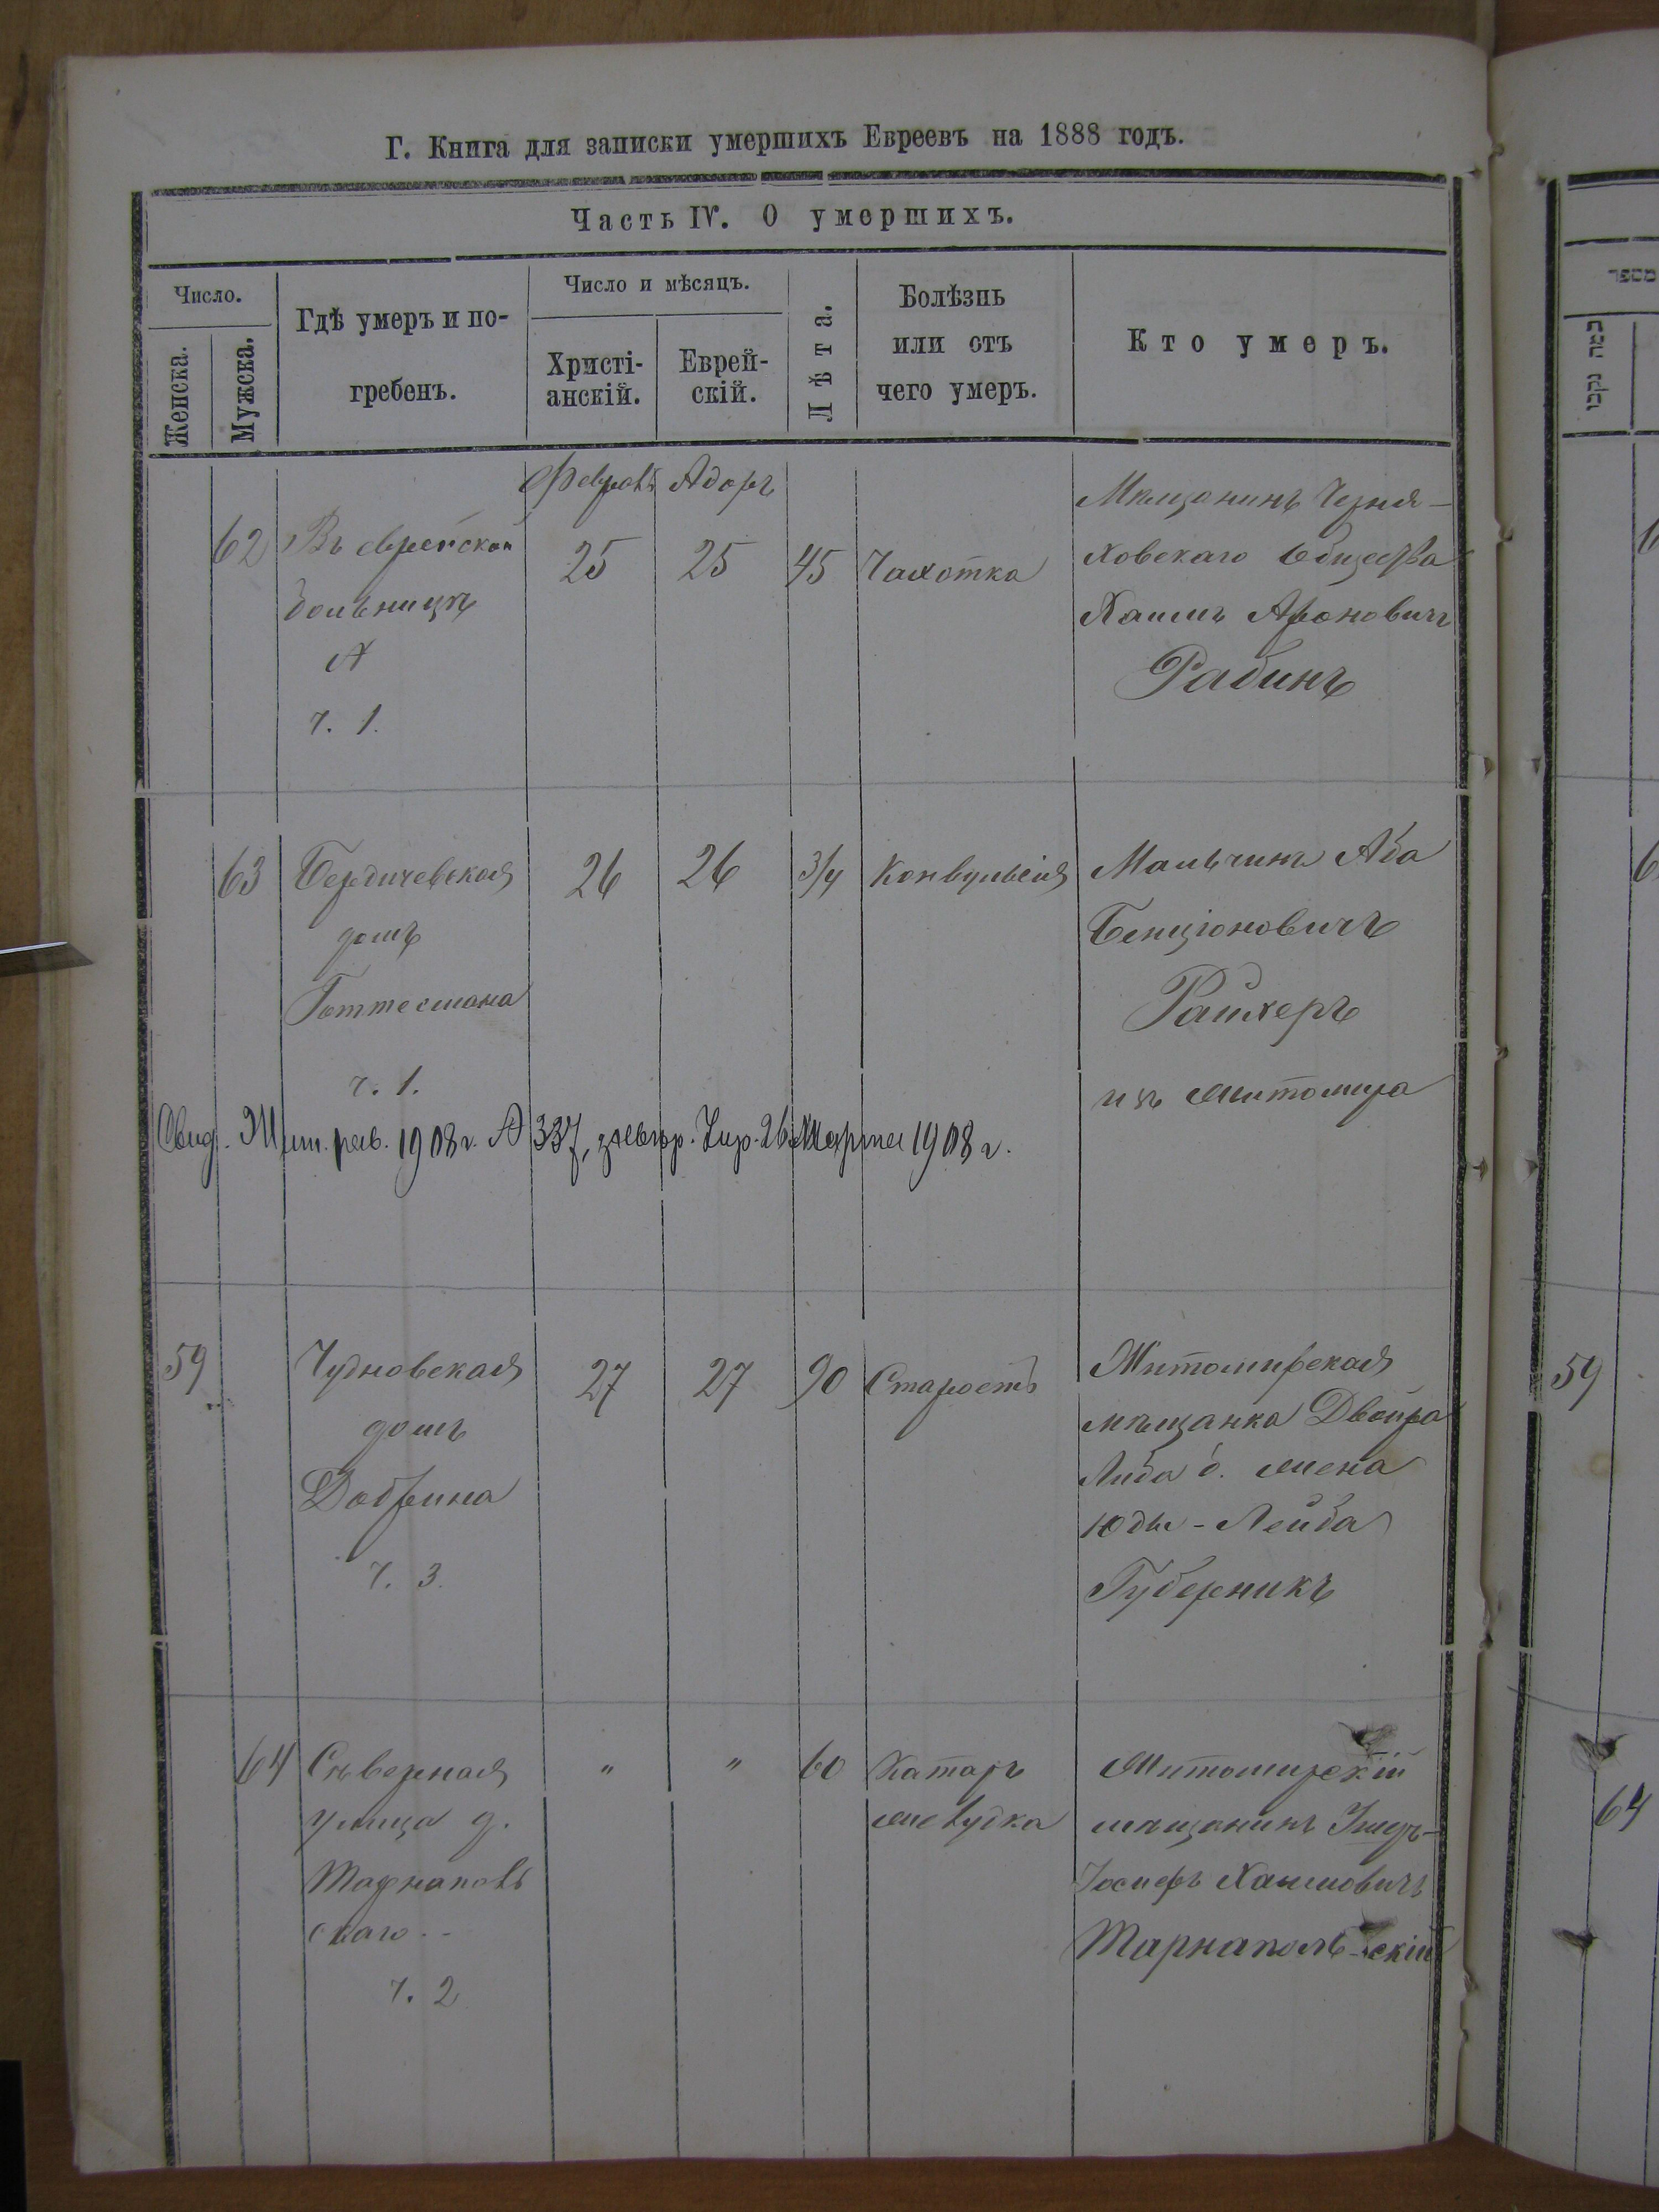 Г. Книга для записки умершихъ Евреевъ на 1888 годъ.
Часть IV. О умершихъ.
Число.
Женска.
Мужска.
Гдѣ умеръ и по-
гребенъ.
Число и мѣсяцъ.
Христі-
анскій.
Еврей-
скій.
Лѣта.
Болѣзнь
или отъ
чего умеръ.
Кто умеръ.
Февраль Адаръ
62
Въ еврейской
больницѣ
ч. 1.
25
25
45
Чахотка
Мѣщанинъ Черня-
ховскаго общества
Хаимъ Ароновичъ
Рабинъ
63
Бердичевская
домъ
Готтесмана
ч. 1.
26
26
3/4
Конвульсія
Мальчикъ Аба
Бенціоновичъ
Райхеръ
изъ Житомира
Свид. Жит. рав. 1908 г. № 337, 26 Марта 1908 г.
59
Чудновская
домъ
Добрина
ч. 3.
27
27
90
Старость
Житомирская
мѣщанка Двойра
Либа б. жена
Юды-Лейба
Губерникъ
64
Сѣверная
улица д.
Тарнополь
скаго
ч. 2
"
"
60
Катаръ
желудка
Житомирскій
мѣщанинъ
Іосифъ Хаимовичъ
Тарнапольскій
מספר
כמה נקבו
59
64